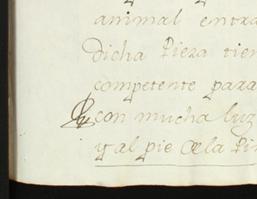 animal entra
dicha Pieza tien
competente para
con mucha luz
y al pie de la Pi